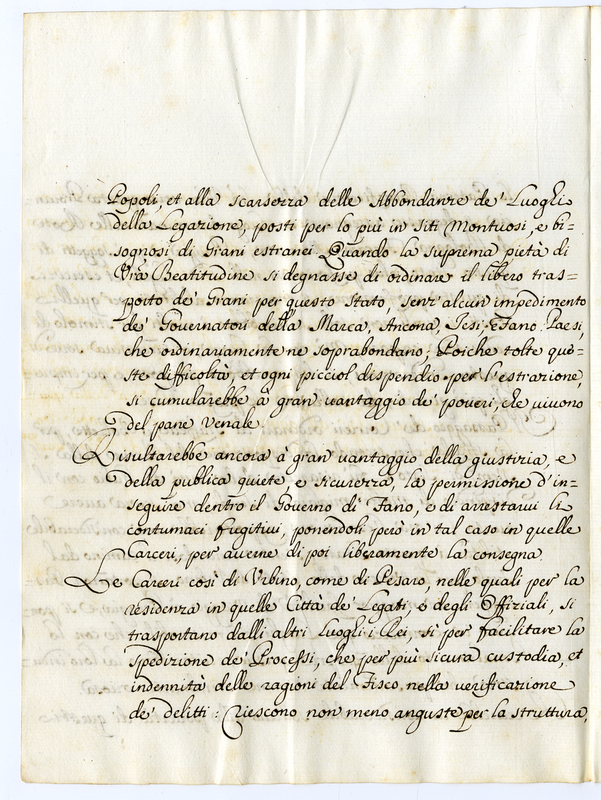 Popoli, et alla scarsezza delle Abbondanze de' Luoghi
della Legazione, posti per lo più in siti Montuosi, e bi=
sognosi di Grani estranei Quando la suprema pietà di
Vrã Beatitudine si degnasse di ordinare il libero tras=
porto de' Grani per questo Stato, senz'alcun impedimento
de' Governatori della Marca, Ancona, Jesi, e Fano Paesi,
che ordinariamente ne soprabondano; Poiche tolte que=
ste difficoltà, et ogni picciol dispendio per l'estrazione,
si cumularebbe à gran vantaggio de' poveri, che vivono
del pane venale.
Risultarebbe ancora à gran vantaggio della giustizia, e
della publica quiete, e sicurezza, la permissione d'in=
seguire dentro il Governo di Fano, e di arrestarvi li
contumaci fugitivi, ponendoli però in tal caso in quelle
Carceri, per averne di poi liberamente la consegna.
Le Carceri così di Urbino, come di Pesaro, nelle quali per la
residenza in quelle Città de' Legati, e degli Offiziali, si
trasportano dalli altri Luoghi i Rei, sì per facilitare la
spedizione de' Processi, che per più sicura custodia, et
indennità delle ragioni del Fisco nella verificazione
de' delitti: Riescono non meno anguste per la struttura,